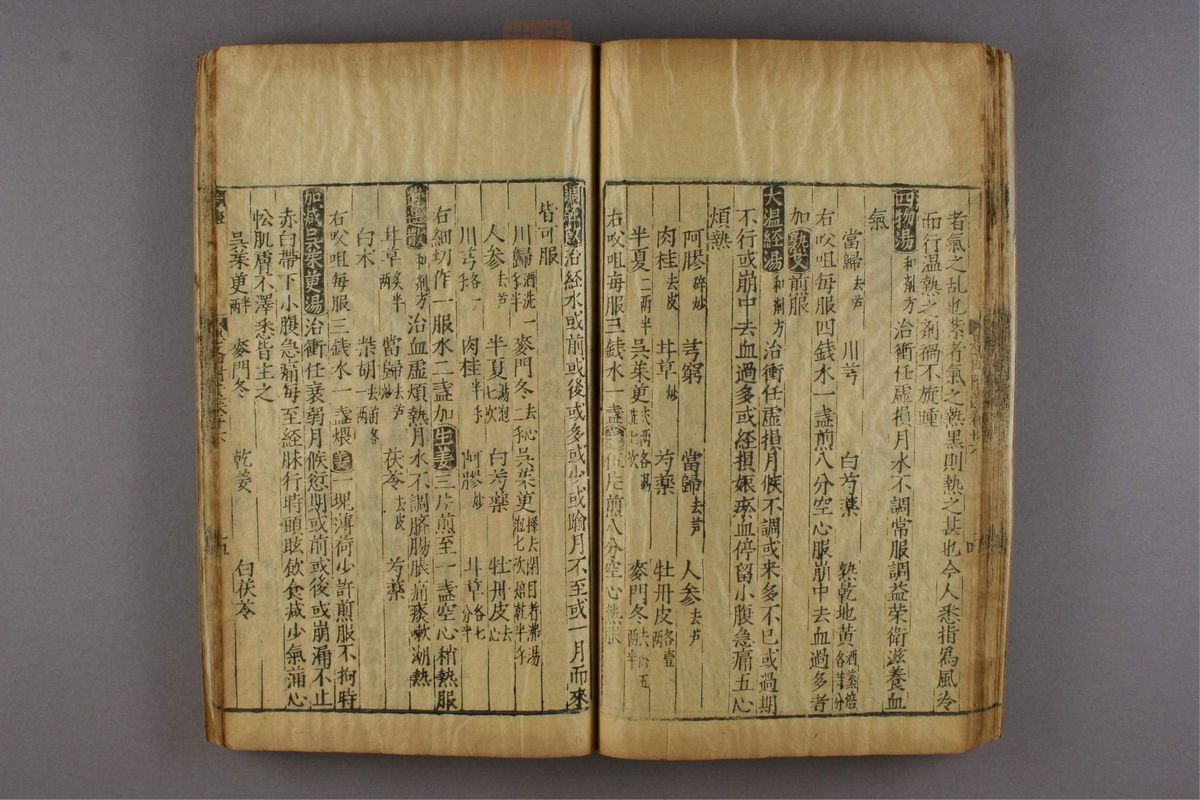 者氣之乱也紫者氣之熱黑則熱之甚也今人悉指為風冷
而行温熱之剤禍不旋踵
四物湯 和剤方 治衝任虚損月水不調常服調益榮衛滋養血
氣
當歸 去芦 川芎 白芍藥 熟乾地黄 酒蒸焙各等分
右㕮咀每服四錢水一盞煎八分空心服崩中去血過多者
加熟艾煎服
大温経湯 和剤方 治衝任虚損月候不調或来多不已或過期
不行或崩中去血過多或経損娠瘀血停留小腹急痛五心
煩熱
阿膠 碎炒 芎藭 當歸 去芦 人参 去芦
肉桂 去皮 甘草 炒 芍藥 牡丹皮 各壹兩
半夏 二兩半 吳茱萸 湯洗七次 麥門冬 去心五兩半
右㕮咀每服三錢水一盞 五片煎八分空心熱服
治経水或前或後或多或少或踰月不至或一月而來
皆可服
川歸 酒洗一 麥門冬 去心二 吳茱萸 擇去閉目者沸湯泡七次焙乾半
人参 去芦 半夏 湯泡七次 白芍藥 牡丹皮 去心
川芎 各一 肉桂 半 阿膠 炒 甘草 各七分半
右細切作一服水二盞加生姜三片煎至一盞空心稍熱服
逍遥散 和剤方 治血虚煩熱月水不調臍腸脹痛痰嗽潮熱
甘草 炙半兩 當歸 去芦炒 茯苓 去皮 芍藥
白木 柴胡 去苗各一兩
右㕮咀每服三錢水一盞煨姜一塊薄荷少許煎服不拘時
加減吳茱萸湯 治衝任衰弱月候愆期或前或後或崩漏不止
赤白帶下小腹急痛每至経脉行時頭眩飲食減少氣蒲心
忪肌膚不澤悉皆主之
吳茱萸 半兩 麥門冬 乾姜 白茯苓